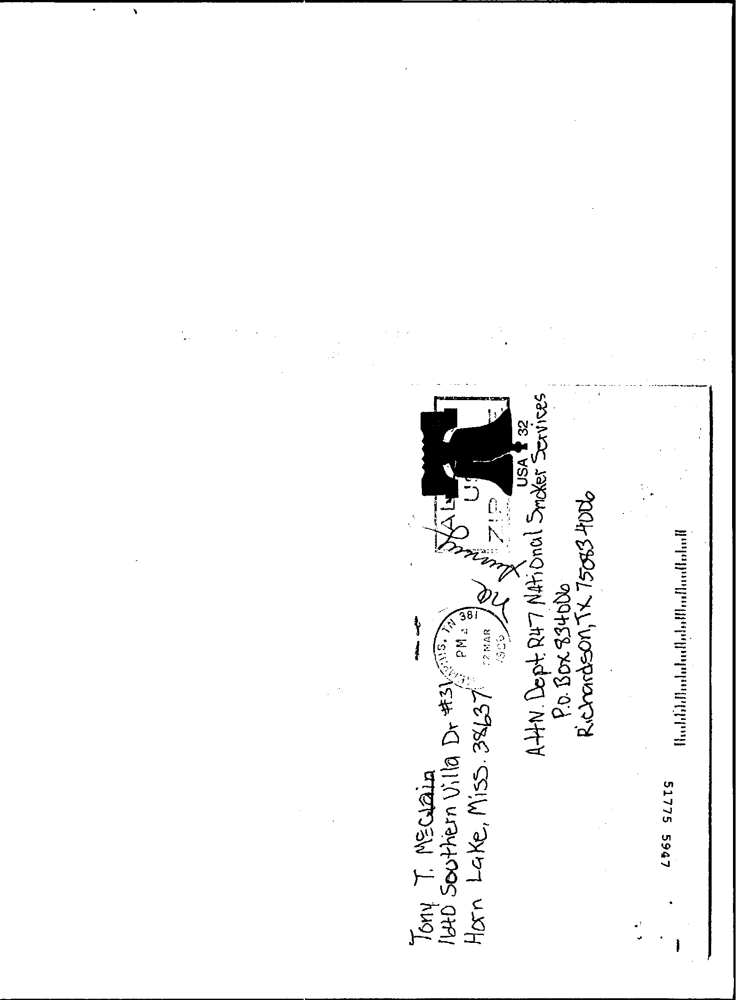 Tony T. McClain
1640 Southern Villa Dr #31
Horn Lake, Miss. 38637
MEMPHIS, TN 381
PM
12 MAR
USA 32
ZIP
Attn. Dept. R47 National Smoker Services
P.O. Box 834006
Richardson, TX 75083 4006
51775 5947